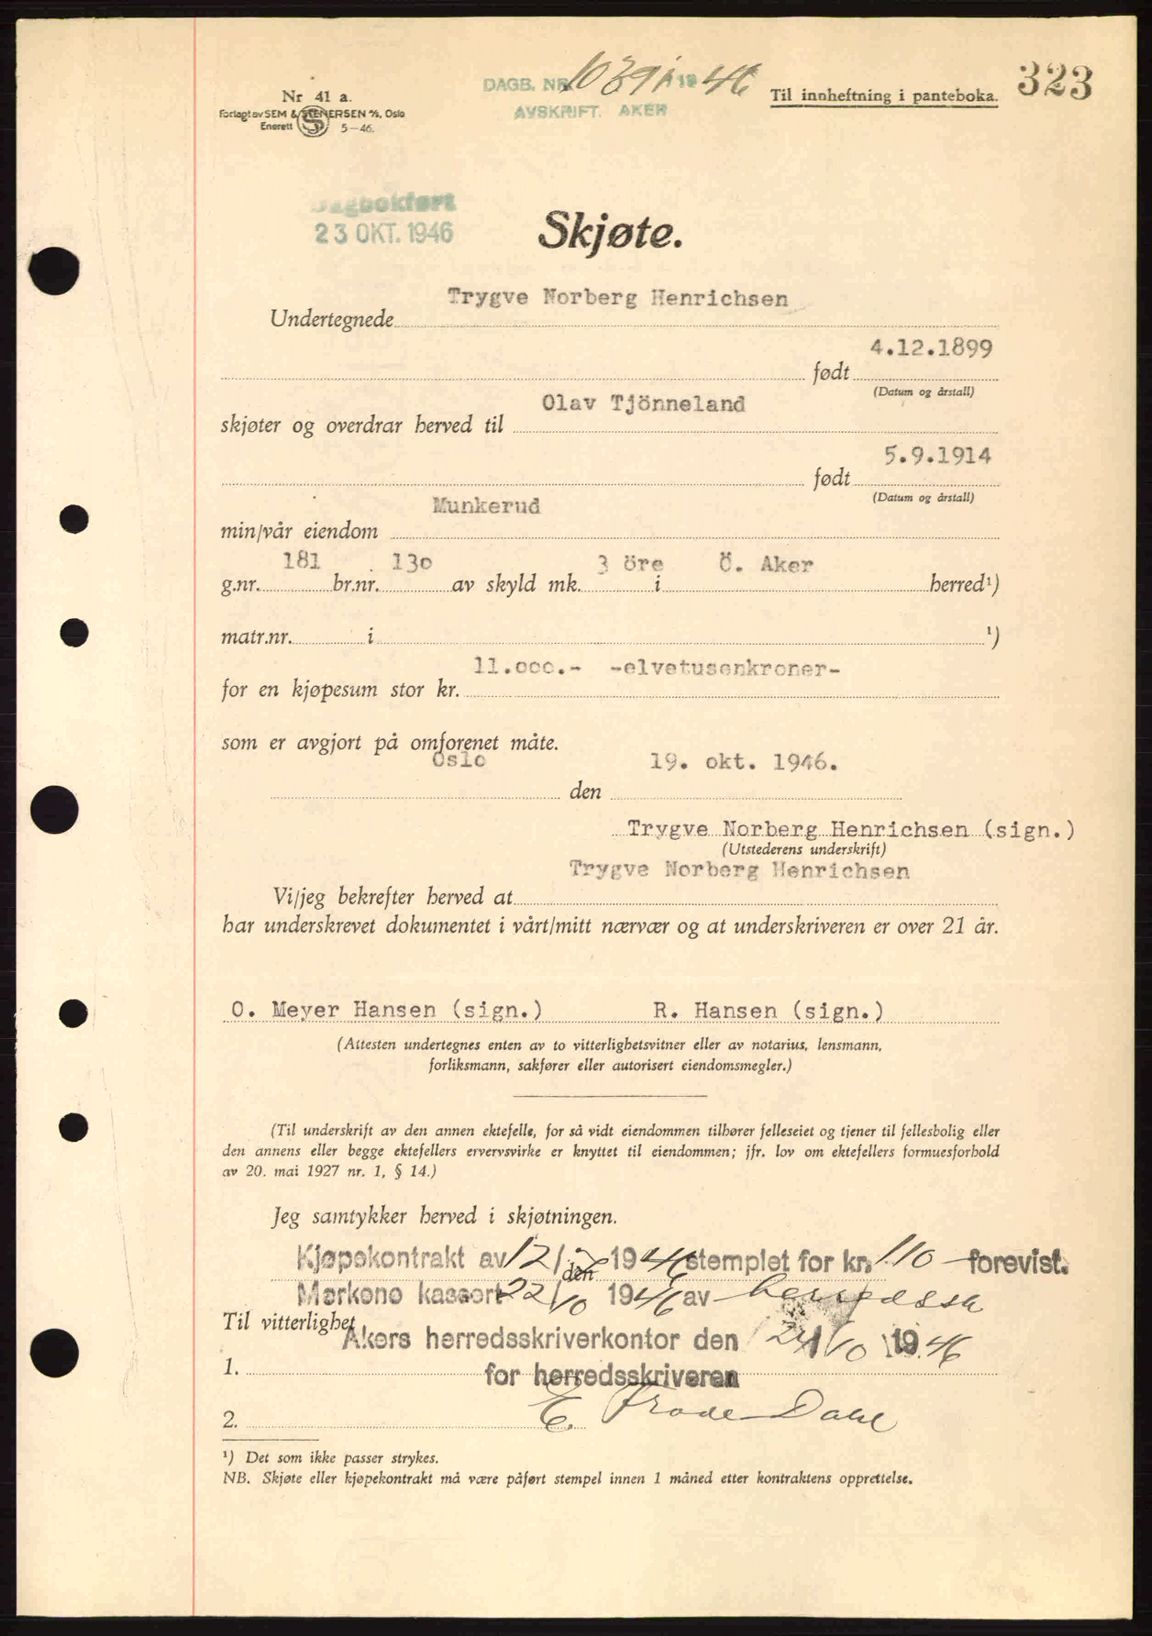 323
DAGB. NR. 1946
AVSKRIFT. AKER
Til innheftning i panteboka.
Nr 41 a.
Forlagt av SEM & STENERSEN A/S, Oslo
Enerett 5-46.
Dagbokført
23 OKT. 1946
Skjøte.
Trygve Norberg Henrichsen
Undertegnede
4.12.1899
født
(Datum og årstall)
Olav Tjönneland
skjøter og overdrar herved til
5.9.1914
født
(Datum og årstall)
Munkerud
min/vår eiendom
181 130 3 öre Ö. Aker
g.nr. br.nr. av skyld mk. i herred¹)
matr.nr. i ¹)
11.000.- -elvetusenkroner-
for en kjøpesum stor kr.
som er avgjort på omforenet måte.
Oslo 19. okt. 1946.
den
Trygve Norberg Henrichsen (sign.)
(Utstederens underskrift)
Trygve Norberg Henrichsen
Vi/jeg bekrefter herved at
har underskrevet dokumentet i vårt/mitt nærvær og at underskriveren er over 21 år.
O. Meyer Hansen (sign.) R. Hansen (sign.)
(Attesten undertegnes enten av to vitterlighetsvitner eller av notarius, lensmann,
forliksmann, sakfører eller autorisert eiendomsmegler.)
(Til underskrift av den annen ektefelle, for så vidt eiendommen tilhører felleseiet og tjener til fellesbolig eller
den annens eller begge ektefellers ervervsvirke er knyttet til eiendommen; jfr. lov om ektefellers formuesforhold
av 20. mai 1927 nr. 1, § 14.)
Jeg samtykker herved i skjøtningen.
Kjøpekontrakt av 12/ 1946 stemplet for kr. 110 forevist.
den
Merkene kassert 22/10 1946 av herredssk
Til vitterlighet
Akers herredsskriverkontor den 24/10 1946
1.
for herredsskriveren
E. Frode Dahl
2.
¹) Det som ikke passer strykes.
NB. Skjøte eller kjøpekontrakt må være påført stempel innen 1 måned etter kontraktens opprettelse.